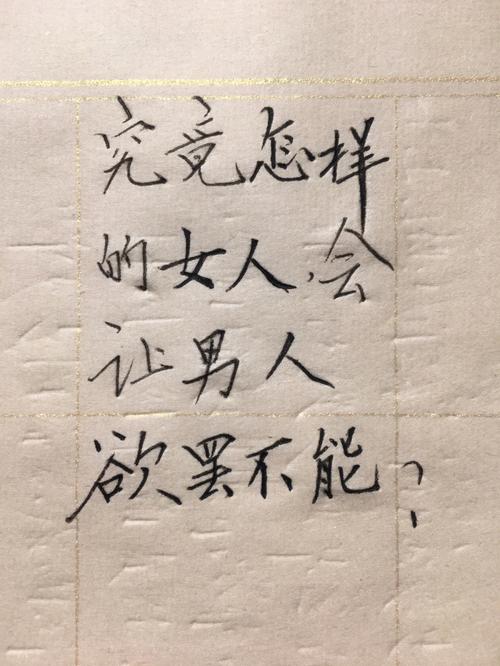 究竟怎样
的女人,会
让男人
欲罢不能?